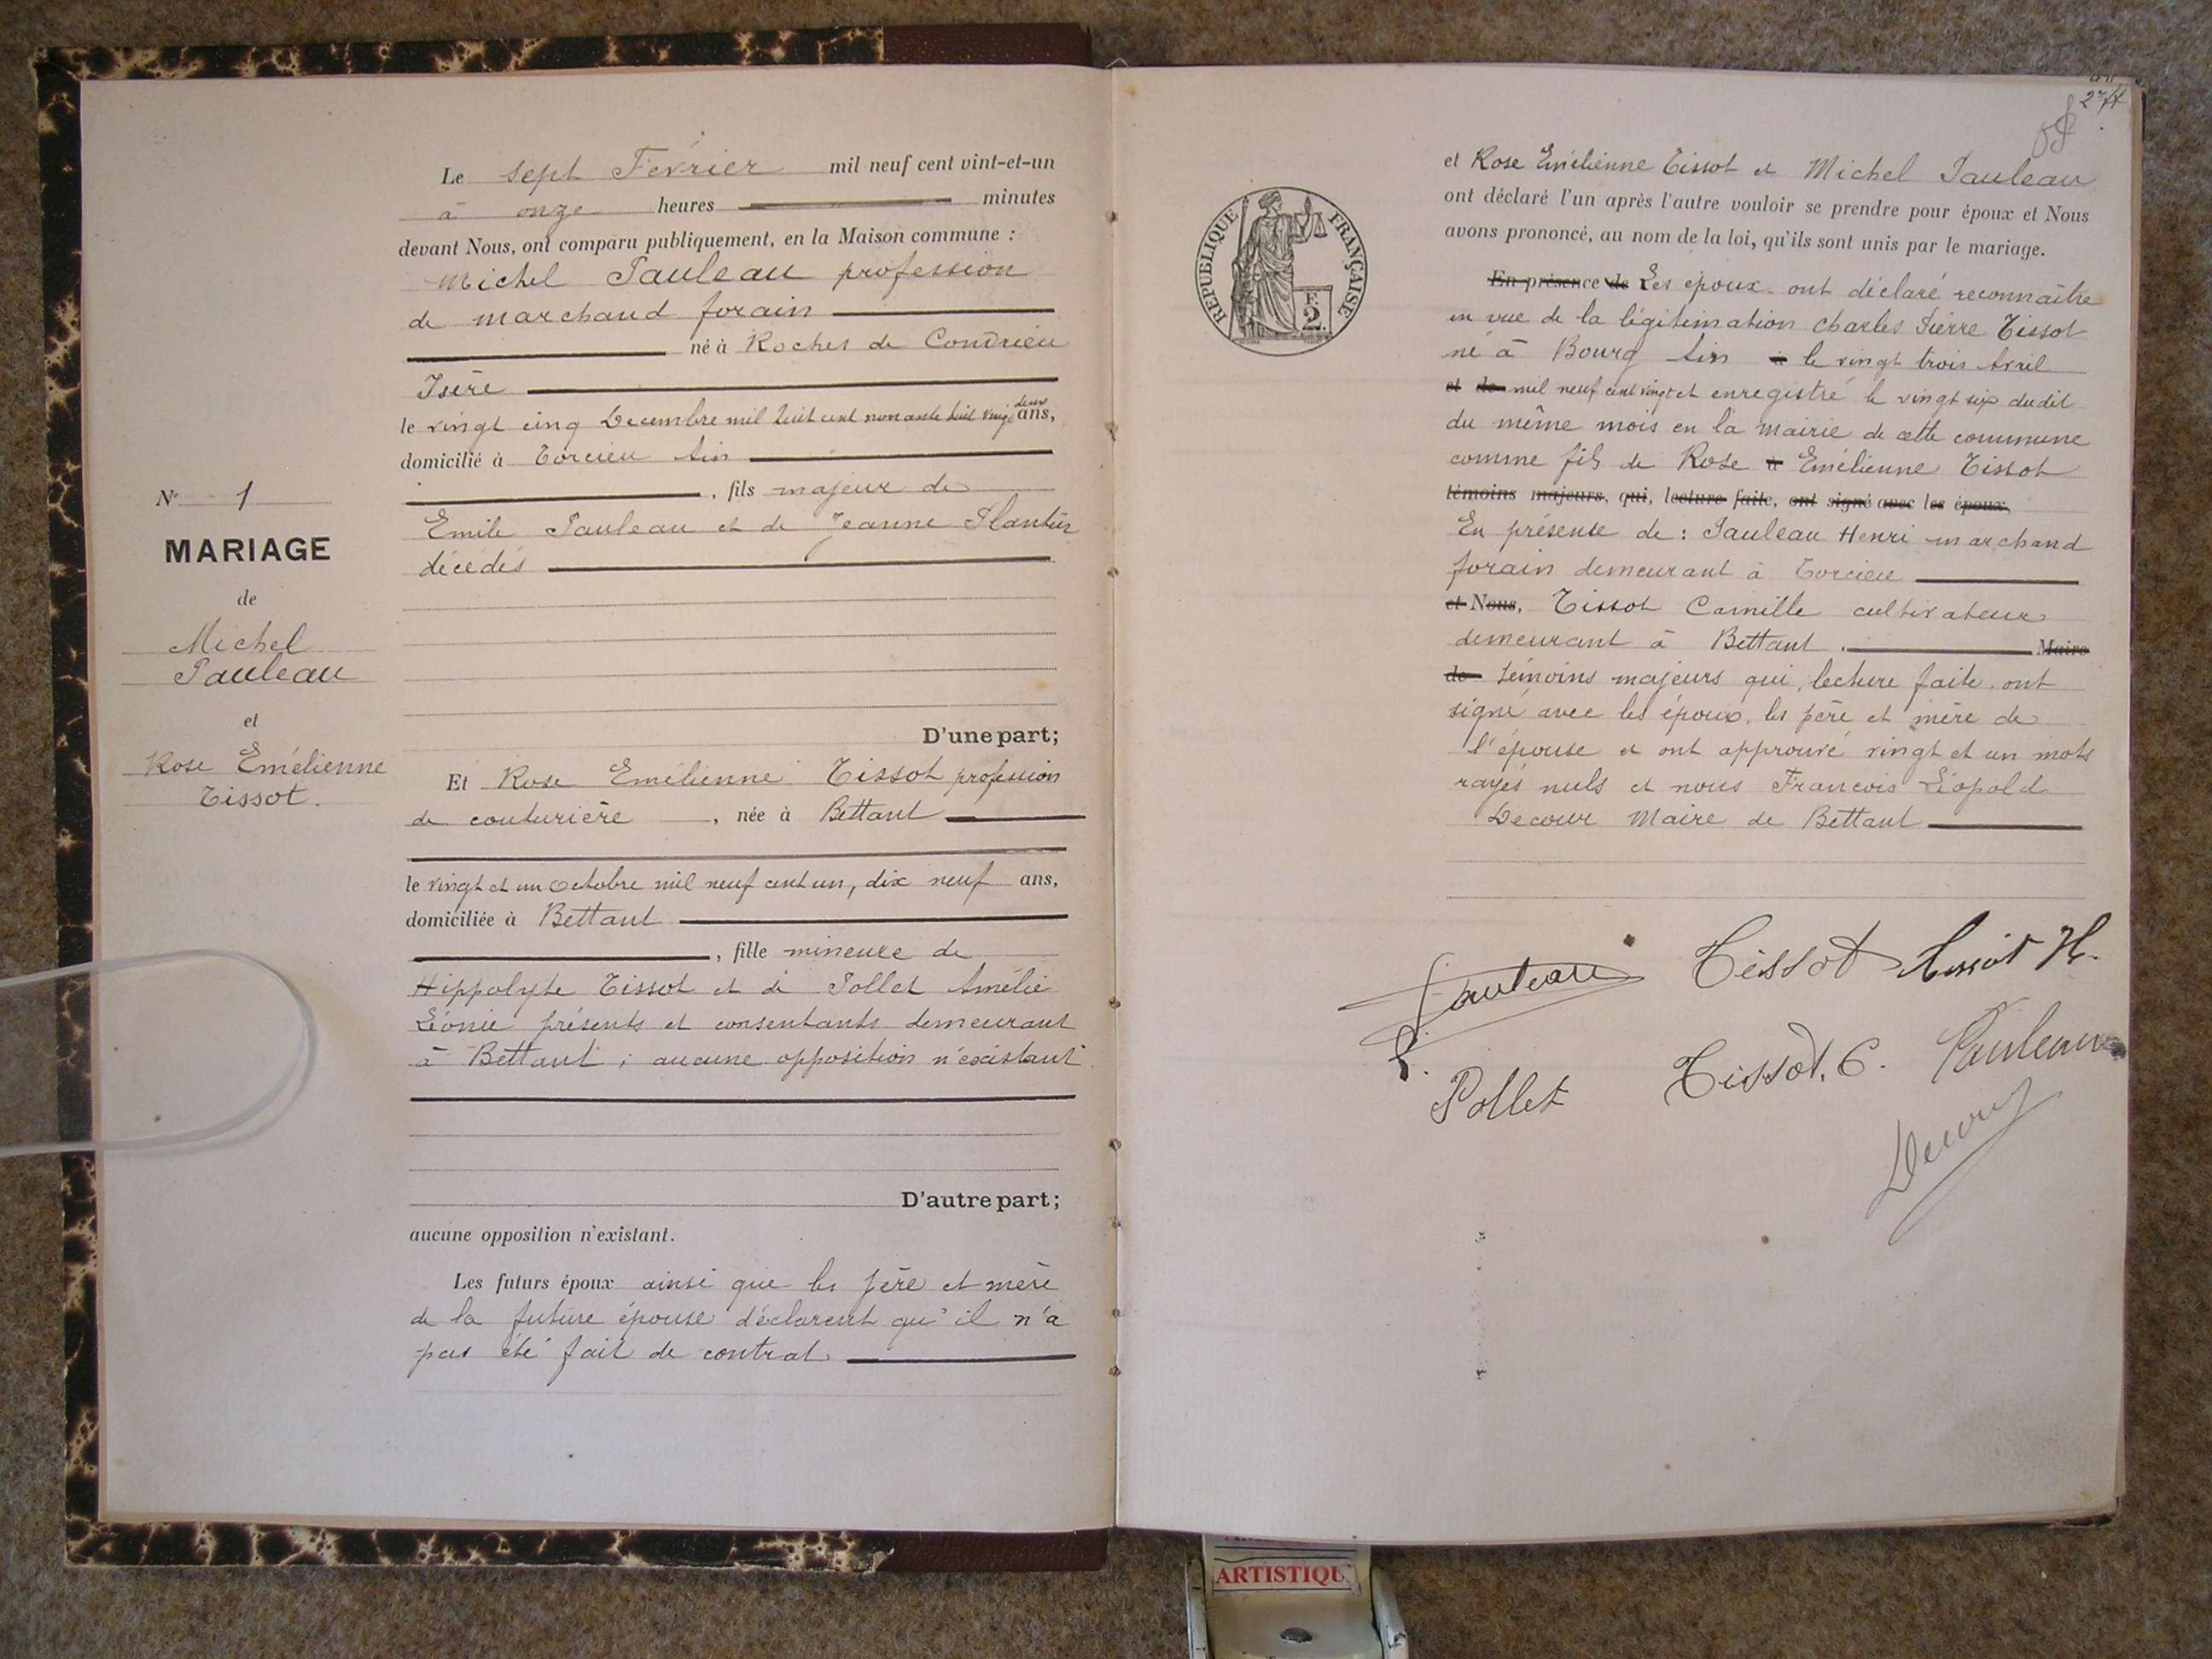 N° 1
MARIAGE
de
Michel
Pauleau
et
Rose Emélienne
Tissot.
Le sept Février mil neuf cent vint-et-un
à onze heures minutes
devant Nous, ont comparu publiquement, en la Maison commune :
Michel Pauleau profession
de marchand forain
né à Roches de Condrieu
Isère
le vingt cinq Decembre mil huit cent nonante huit vingt deux ans,
domicilié à Torcieu Ain
, fils majeur de
Emile Pauleau et de Jeanne Plantier
décédés
D'une part;
Et Rose Emélienne Tissot profession
de couturière , née à Bettant
le vingt et un Octobre mil neuf cent un, dix neuf ans,
domiciliée à Bettant
, fille mineure de
Hippolyte Tissot et de Pollet Amélie
Léonie présents et consentants demeurant
à Bettant ; aucune opposition n'existant
D'autre part;
aucune opposition n'existant.
Les futurs époux ainsi que les père et mère
de la future épouse déclarent qu'il n'a
pas été fait de contrat.
REPUBLIQUE FRANÇAISE
F.
2.
et Rose Emélienne Tissot et Michel Pauleau
ont déclaré l'un après l'autre vouloir se prendre pour époux et Nous
avons prononcé, au nom de la loi, qu'ils sont unis par le mariage.
En présence de Les époux ont déclaré reconnaître
en vue de la légitimation Charles Pierre Tissot
né à Bourg Ain à le vingt trois Avril
et de mil neuf cent vingt et enregistré le vingt six dudit
du même mois en la mairie de cette commune
comme fils de Rose à Emélienne Tissot
témoins majeurs, qui, lecture faite, ont signé avec les époux,
En présense de : Pauleau Henri marchand
forain demeurant à Torcieu
et Nous, Tissot Camille cultivateur
demeurant à Bettant . Maire
de témoins majeurs qui, lecture faite, ont
signé avec les époux, les père et mère de
l'épouse et ont approuvé vingt et un mots
rayés nuls et nous François Léopold
Decour Maire de Bettant
Pauleau Tissot Tissot H.
Pollet Tissot, C. Pauleau
Decour
ARTISTIQU